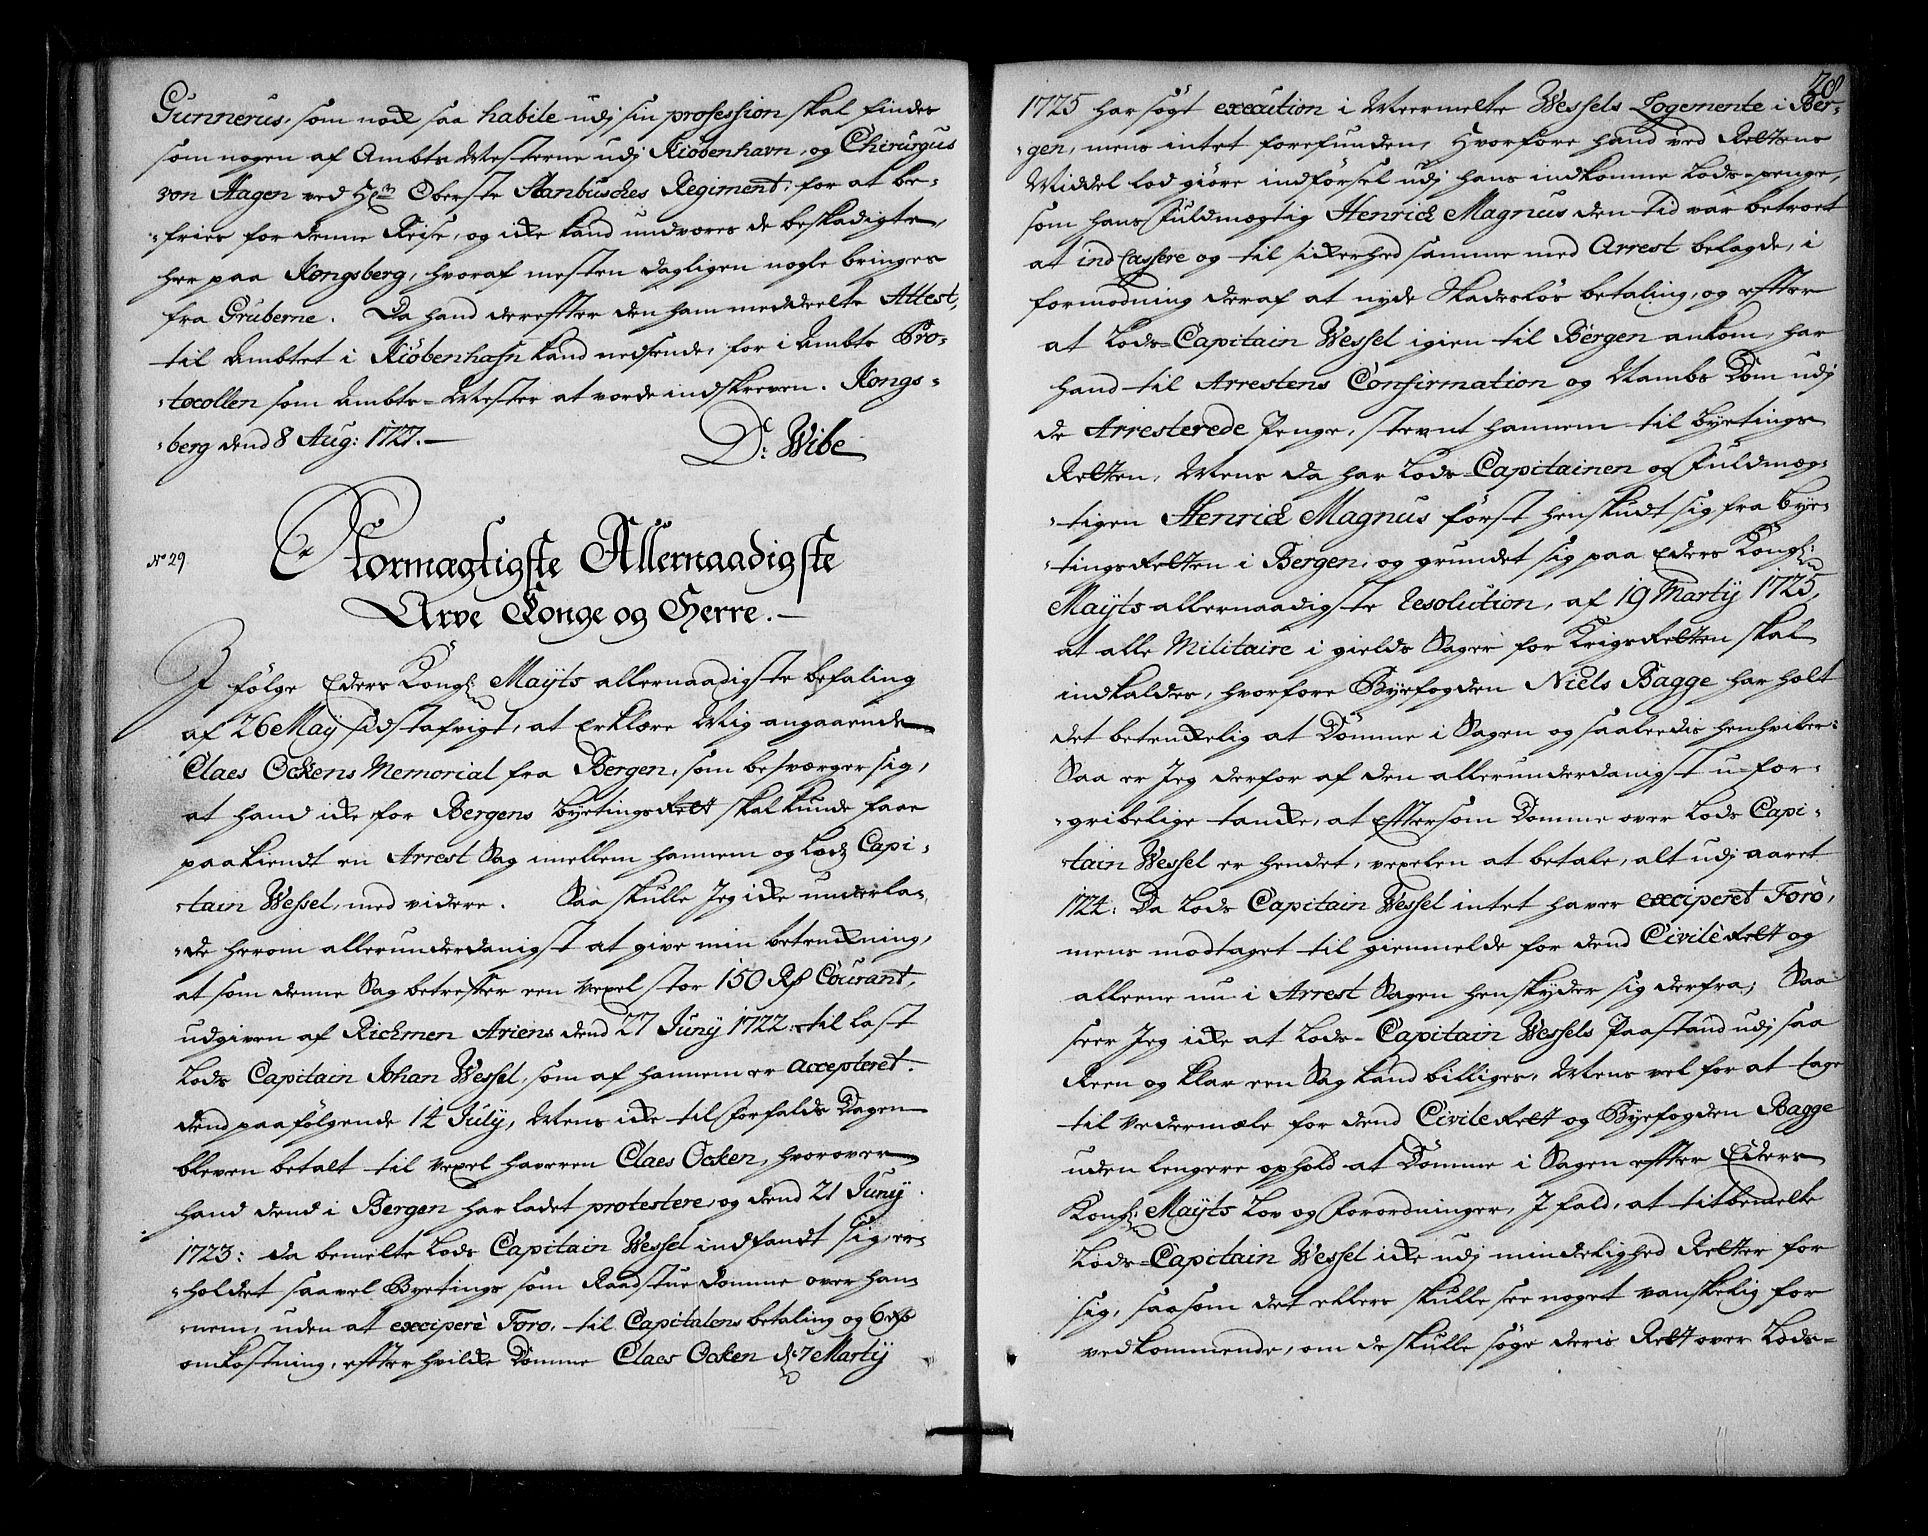 Gunnerus, som nock saa habile udj sin profession skal findes
som nogen af Ambts Mesterne udj Kiöbenhavn, og Chirurgus
von Hagen ved Hrn Oberste Stanbusches Regiment, for at be-
-fries for denne Reise, og icke kand undværes de beskadigte,
her paa Kongsberg, hvoraf mesten dagligen nogle bringes
fra Gruberne. Da hand derefter den ham meddeelte Attest,
til Ambtet i Kiöbenhafn kand nedsende, for i Ambts Pro-
-tocollen som Ambts-Mester at vorde indskreven. Kongs-
-berg dend 8 Aug: 1727.—
D: Wibe
No 29
Stormægtigste Allernaadigste
Arve Konge og Herre.—
I fölge Eders Kongl: Mayts allernaadigste befaling
af 26 May sidstafvigt, at Erklære Mig angaaende
Claes Ockens Memorial fra Bergen, som besværger sig,
at hand icke for Bergens byetingsRett skal kunde faae
paakiendt en Arrest Sag imellem hannem og Lods Capi-
-tain Wessel, med videre. Saa skulle Jeg icke underla-
-de herom allerunderdanigst at give min betenckning,
at som denne Sag betreffer een Vexel stor 150 Rd Courant,
udgiven af Rickmen Ariens dend 27 Juny 1722. til Last
Lods Capitain Johan Wessel, som af hannem er accepteret.
dend paafölgende 14 July, Mens icke til Forfalds Dagen
bleven betalt til Vexel haveren Claes Ocken, hvorover
hand dend i Bergen har ladet protestere, og dend 21 Juny
1723: da bemelte Lods Capitain Wessel indfandt sig er-
-holdet saavel Byetings som Raadstue Domme over han-
-nem, uden at excipere Foro, til Capitalens betaling og 6 rd
omkostning, effter hvilcke Domme Claes Ocken d: 7 Marty
28
1725 har sögt execution i Meermelte Wessels Logemente i Ber-
-gen, mens intet forefunden, Hvorfore hand ved Rettens
Middel lod giöre indförsel udj hans indkomne Lods-penge,
som hans Fuldmægtig Henrick Magnus den tid var betroet
at indCassere og til sickerhed samme med Arrest belagde, i
formodning deraf at nyde Skadeslös betaling, og effter
at Lods-Capitain Wessel igien til Bergen ankom, har
hand til Arrestens Confirmation og Nambs Dom udj
de Arresterede Penge, stevnt hannem til Byetings
Retten, Mens da har Lods-Capitainen og Fuldmæg-
-tigen Henrick Magnus först henskudt sig fra bye-
-tingsRetten i Bergen, og grundet sig paa Eders Kongl:
Mayts allernaadigste Resolution, af 19 Marty 1725,
at alle Militaire i gields Sager for KrigsRetten skal
indkaldes, hvorfore Byefogden Niels Bagge har holt
det betenckelig at Dömme i Sagen og saaleedis henhviler.
Saa er Jeg derfor af den allerunderdanigst u-for-
-gribelige tancke, at Efftersom Domme over Lods Capi-
-tain Wessel er hendet, vexelen at betale, alt udj aaret
1724: Da Lods Capitain Wessel intet haver exciperet Foro,
mens modtaget til giemmelde for dend Civile Rett og
alleene nu i Arrest Sagen henskyder sig derfra; Saa
seer Jeg icke at Lods-Capitain Wessels Paastand udj saa
Reen og klar een Sag kand billiges, Mens vel for at tage
til Vedermæle for dend Civile Rett og Byefogden Bagge
uden lengere ophold at Dömme i Sagen effter Eders
Kongl: Mayts Lov og Forordninger, J fald, at titbemelte
Lods-Capitain Wessel icke udj mindelighed Retter for
sig, saasom det ellers skulle see noget vanskelig for
vedkommende, om de skulle söge deris Rett over Lods-